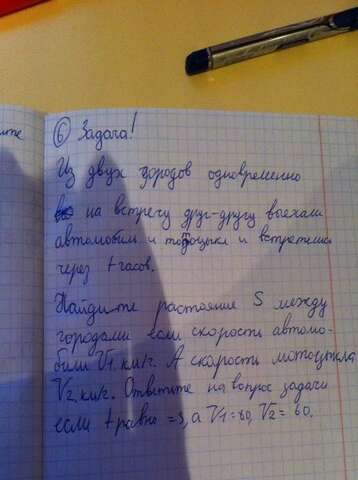 ⑥ Задача!
Из двух городов одновременно
на встречу друг-другу выехали
автомобили и мотоцыкл и встретились
через t часов.
Найдите растояние S между
городами если скорости автомо-
били V1 км/ч. А скорости мотоцыкла
V2 км/ч. Ответите на вопрос задачи
если t равно =3, а V1=80, V2= 60.